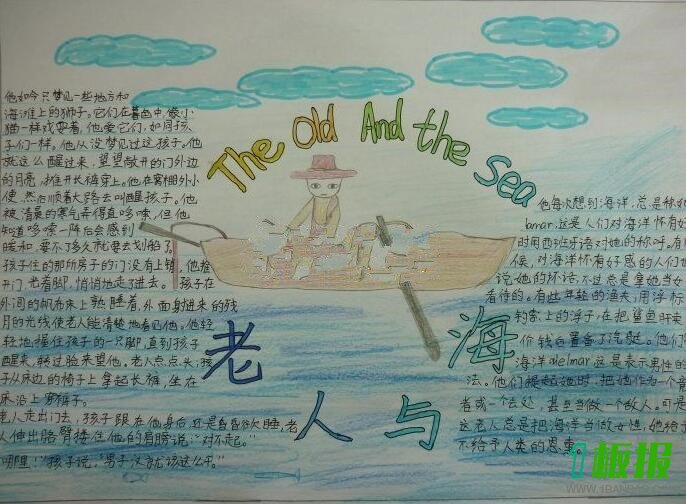 The Old And the Sea
他如今只梦见一些地方和
海滩上的狮子。它们在暮色中，像小
猫一样戏耍着，他爱它们，如同孩
子们一样。他从没梦见过这孩子。他
就这么醒过来，望望敞开的门外边
的月亮，摊开长裤穿上。他在窝棚外小
便，然后顺着大路去叫醒孩子。他
被清晨的寒气弄得直哆嗦，但他
知道哆嗦一阵后会感到
暖和，要不了多久就要去划船了
孩子住的那所房子的门没有上锁，他推
开门，光着脚，悄悄地走了进去。孩子在
外间的帆布床上熟睡着，外面射进来的残
月的光线，使老人能清楚地看见他。他轻
轻地握住孩子的一只脚，直到孩子
醒来，转过脸来望他。老人点点头，孩
子从床边的椅子上拿起长裤，坐在
床沿上穿裤子。
老人走出门去，孩子跟在他身后，还是昏昏欲睡，老
人伸出胳臂搂住他的肩膀说：“对不起。”
哪里！”孩子说，“男子汉就该这么干。
他每次想到海洋，总是称她
lamar，这是人们对海洋怀有好
时用西班牙语对她的称呼。有
候，对海洋怀有好感的人们也
说她的坏话，不过总是拿她当女
看待的。有些年轻的渔夫，用浮标
钓索上的浮子，在把鲨鱼肝卖
价钱后置备了汽艇。他们
海洋 aielmar 这是表示男性的
法。他们提起她时，把她作一个
者或一个去处，甚至当做一个敌人。可是
这老人总是把海洋当做女性，她给
不给予人类的恩惠
老人与海
1板报
WWW.1BANBAO